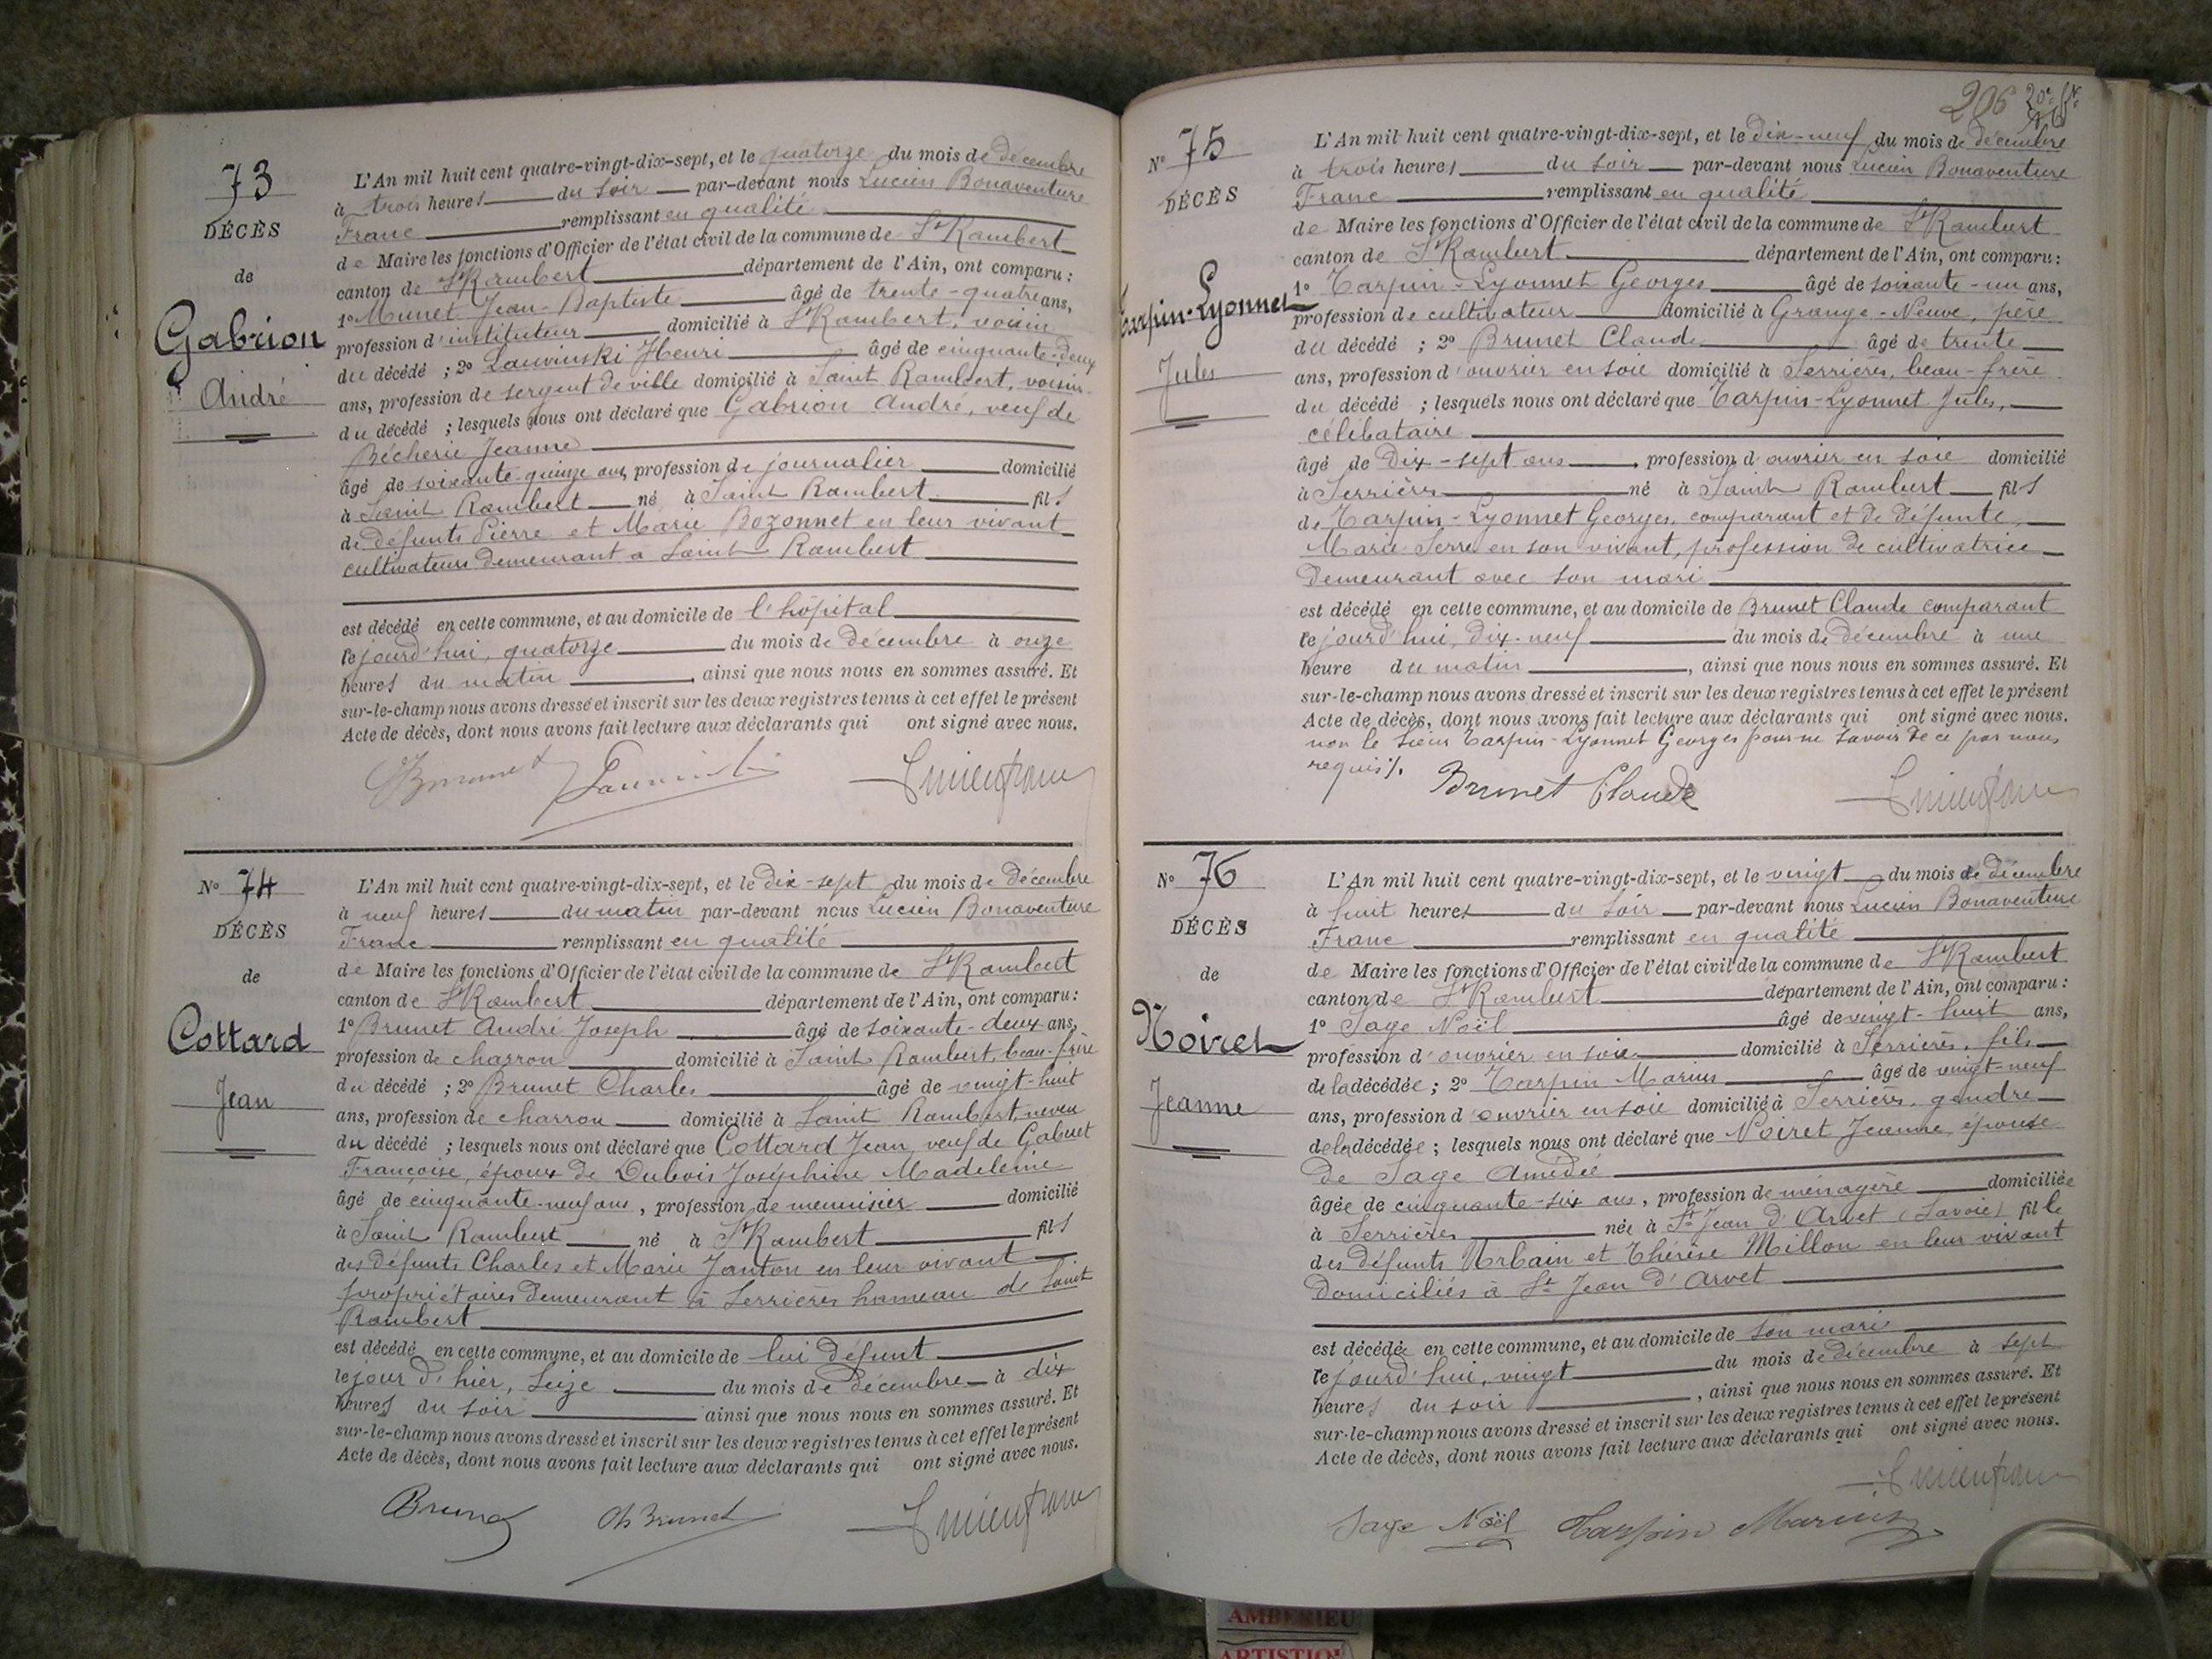 73
DÉCÈS
de
Gabrion
André
L'An mil huit cent quatre-vingt-dix-sept, et le quatorze du mois de décembre
à trois heures du soir par-devant nous Lucien Bonaventure
Franc remplissant en qualité
de Maire les fonctions d'Officier de l'état civil de la commune de St Rambert
canton de St Rambert département de l'Ain, ont comparu :
1° Munet Jean-Baptiste âgé de trente-quatre ans,
profession d'instituteur domicilié à St Rambert, voisin
du décédé ; 2° Lauvinski Henri âgé de cinquante-deux
ans, profession de sergent de ville domicilié à Saint Rambert, voisin
du décédé ; lesquels nous ont déclaré que Gabrion André, veuf de
Bécherie Jeanne
âgé de soixante-quinze ans, profession de journalier domicilié
à Saint Rambert né à Saint Rambert fils
de défunts Pierre et Marie Bozonnet en leur vivant
cultivateurs demeurant à Saint Rambert
est décédé en cette commune, et au domicile de l'hôpital
le jourd'hui, quatorze du mois de décembre à onze
heures du matin, ainsi que nous nous en sommes assuré. Et
sur-le-champ nous avons dressé et inscrit sur les deux registres tenus à cet effet le présent
Acte de décès, dont nous avons fait lecture aux déclarants qui ont signé avec nous.
No 74
DÉCÈS
de
Cottard
Jean
L'An mil huit cent quatre-vingt-dix-sept, et le dix-sept du mois de décembre
à neuf heures du matin par-devant nous Lucien Bonaventure
Franc remplissant en qualité
de Maire les fonctions d'Officier de l'état civil de la commune de St Rambert
canton de St Rambert département de l'Ain, ont comparu :
1° Brunet André Joseph âgé de soixante-deux ans,
profession de charron domicilié à Saint Rambert, beau-frère
du décédé ; 2° Brunet Charles âgé de vingt-huit
ans, profession de charron domicilié à Saint Rambert, neveu
du décédé ; lesquels nous ont déclaré que Cottard Jean, veuf de Gabuet
Françoise, époux de Dubois Joséphine Madeleine
âgé de cinquante-neuf ans, profession de menuisier domicilié
à Saint Rambert né à St Rambert fils
des défunts Charles et Marie Janton en leur vivant
propriétaires demeurant à Serrières hameau de Saint
Rambert
est décédé en cette commune, et au domicile de lui défunt
le jour d'hier, seize du mois de décembre à dix
heures du soir ainsi que nous nous en sommes assuré. Et
sur-le-champ nous avons dressé et inscrit sur les deux registres tenus à cet effet le présent
Acte de décès, dont nous avons fait lecture aux déclarants qui ont signé avec nous.
Brunet Ch Brunet
206
No 75
DÉCÈS
Tarpin-Lyonnet
Jules
L'An mil huit cent quatre-vingt-dix-sept, et le dix-neuf du mois de décembre
à trois heures du soir par-devant nous Lucien Bonaventure
Franc remplissant en qualité
de Maire les fonctions d'Officier de l'état civil de la commune de St Rambert
canton de St Rambert département de l'Ain, ont comparu :
1° Tarpin-Lyonnet Georges âgé de soixante-un ans,
profession de cultivateur domicilié à Grange-Neuve, père
du décédé ; 2° Brunet Claude âgé de trente
ans, profession d'ouvrier en soie domicilié à Serrières, beau-frère
du décédé ; lesquels nous ont déclaré que Tarpin-Lyonnet Jules,
célibataire
âgé de Dix-sept ans, profession d'ouvrier en soie domicilié
à Serrières né à Saint Rambert fils
de Tarpin-Lyonnet Georges, comparant et de défunte
Marie Serre en son vivant, profession de cultivatrice
demeurant avec son mari
est décédé en cette commune, et au domicile de Brunet Claude comparant
le jourd'hui, dix-neuf du mois de décembre à une
heure du matin, ainsi que nous nous en sommes assuré. Et
sur-le-champ nous avons dressé et inscrit sur les deux registres tenus à cet effet le présent
Acte de décès, dont nous avons fait lecture aux déclarants qui ont signé avec nous.
non le sieur Tarpin-Lyonnet Georges pour ne savoir de ce par nous
requis.
Brunet Claude
No 76
DÉCÈS
de
Noiret
Jeanne
L'An mil huit cent quatre-vingt-dix-sept, et le vingt du mois de décembre
à huit heures du soir par-devant nous Lucien Bonaventure
Franc remplissant en qualité
de Maire les fonctions d'Officier de l'état civil de la commune de St Rambert
canton de St Rambert département de l'Ain, ont comparu :
1° Sage Noël âgé de vingt-huit ans,
profession d'ouvrier en soie domicilié à Serrières, fils
de la décédée ; 2° Tarpin Marius âgé de vingt-neuf
ans, profession d'ouvrier en soie domicilié à Serrières, gendre
de la décédée ; lesquels nous ont déclaré que Noiret Jeanne, épouse
de Sage Amédée
âgée de cinquante-six ans, profession de ménagère domiciliée
à Serrières née à St Jean d'Arvet (Savoie) fille
des défunts Urbain et Thérèse Millon en leur vivant
domiciliés à St Jean d'Arvet
est décédée en cette commune, et au domicile de son mari
le jourd'hui, vingt du mois de décembre à sept
heures du soir, ainsi que nous nous en sommes assuré. Et
sur-le-champ nous avons dressé et inscrit sur les deux registres tenus à cet effet le présent
Acte de décès, dont nous avons fait lecture aux déclarants qui ont signé avec nous.
Sage Noël Tarpin Marius
AMBERIEU